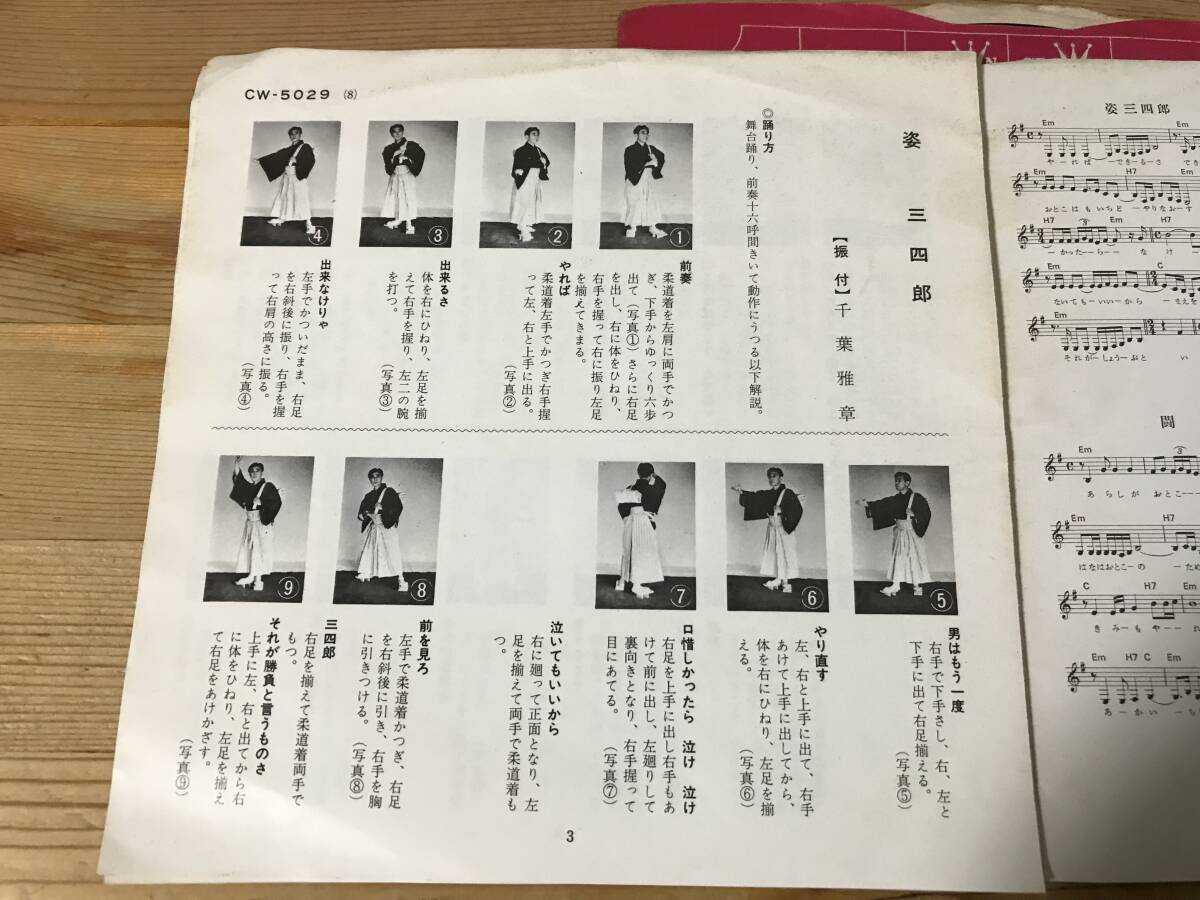 CW-5029 (8)
姿三四郎
【振付】千葉雅章
◎踊り方
舞台踊り、前奏十六呼間きいて動作にうつる以下解説。
①
②
③
④
前奏
柔道着を左肩に両手でかつ
ぎ、下手からゆっくり六歩
出て(写真①)さらに右足
を出し、右に体をひねり、
右手を握って右に振り左足
を揃えてきまる。
やれば
柔道着左手でかつぎ右手握
って左、右と上手に出る。
(写真②)
出来るさ
体を右にひねり、左足を揃
えて右手を握り、左二の腕
を打つ。
(写真③)
出来なけりゃ
左手でかついだまま、右足
を右斜後に振り、右手を握
って右肩の高さに振る。
(写真④)
⑤
⑥
⑦
⑧
⑨
男はもう一度
右手で下手さし、右、左と
下手に出て右足揃える。
(写真⑤)
やり直す
左、右と上手に出て、右手
あけて上手に出してから、
体を右にひねり、左足を揃
える。
(写真⑥)
口惜しかったら 泣け 泣け
右足を上手に出し右手もあ
けて前に出し、左廻りして
裏向きとなり、右手握って
目にあてる。
(写真⑦)
泣いてもいいから
右に廻って正面となり、左
足を揃えて両手で柔道着も
つ。
前を見ろ
左手で柔道着かつぎ、右足
を右斜後に引き、右手を胸
に引きつける。
(写真⑧)
三四郎
右足を揃えて柔道着両手で
もつ。
それが勝負と言うものさ
上手に左、右と出てから右
に体をひねり、左足を揃え
て右足をあけかざす。
(写真⑨)
3
姿三四郎
Em Em
やーれば ーできーるーさ でき
Em H7 Em
おとこはもいちど ーやりなおーす
H7 Em H7
ーかったーらー なけー
Em C
ないてもーいいーから ーまえを
Em
それがーしょうーぶと い
闘
Em
あらしが おとこーー
Em H7
はなはおとこーの ーため
C H7 Em
きみーもやーーれ
Em H7 C Em
あーかいーち